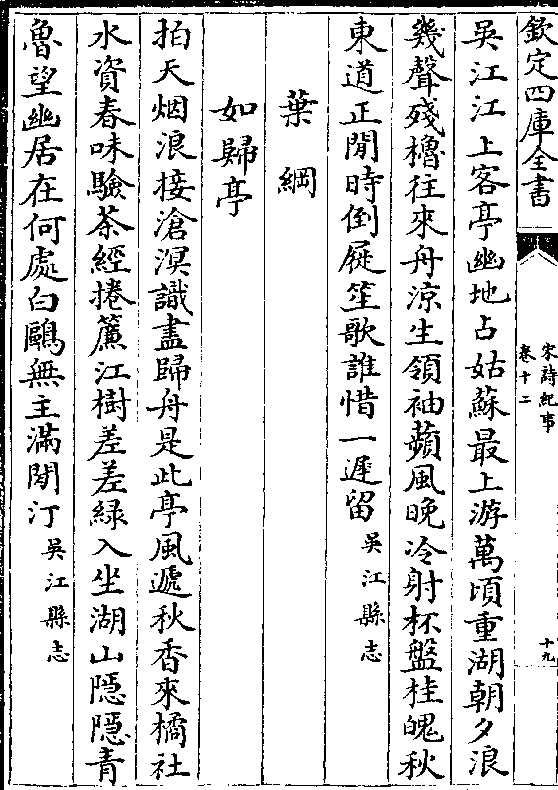 欽定四庫全書
宋詩紀事
卷十二
十九
吳江江上客亭幽地占姑蘇最上游萬頃重湖朝夕浪
幾聲殘櫓往來舟涼生領袖蘋風晚冷射杯盤桂魄秋
東道正閒時倒屣笙歌誰惜一遲留吳江縣志
葉綱
如歸亭
拍天烟浪接滄溟識盡歸舟是此亭風遞秋香來橘社
水資春味驗茶經捲簾江樹差差綠入坐湖山隱隱青
魯望幽居在何處白鷗無主滿閒汀吳江縣志